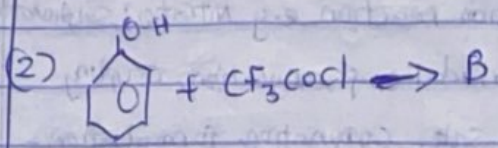 (2) O-H + CF3COCl → B